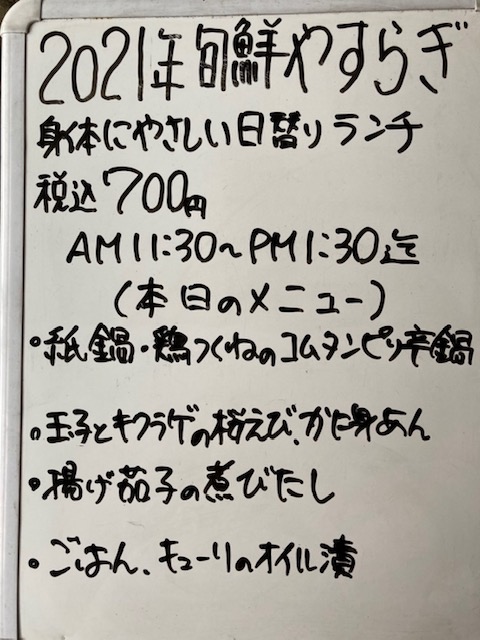 2021年旬鮮やすらぎ
身体にやさしい日替りランチ
税込700円
AM11:30〜PM1:30迄
(本日のメニュー)
・紙鍋・鶏つくねのコムタンピリ辛鍋
・玉子とキクラゲの桜えび、かに身あん
・揚げ茄子の煮びたし
・ごはん、キューリのオイル漬